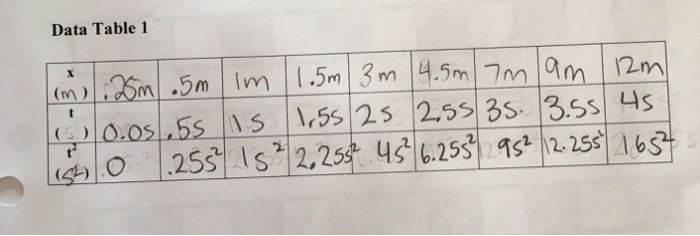 Data Table 1
x (m) .25m .5m 1m 1.5m 3m 4.5m 7m 9m 12m
t (s) 0.0s .5s 1s 1.5s 2s 2.5s 3s. 3.5s 4s
t² (s²) .0 .25s² 1s² 2.25s² 4s² 6.25s² 9s² 12.25s² 16s²